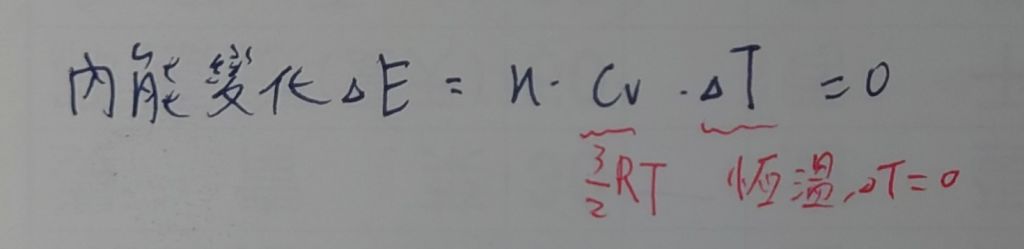 內能變化 ΔE = n · Cv · ΔT = 0
3/2 RT 恆溫, ΔT = 0